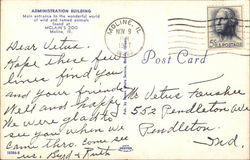 ADMINISTRATION BUILDING
Main entrance to the wonderful world
of wild and tamed animals
found at
McLAIN'S ZOO
Moline, Ill.
Dear Vetus.
Hope these few
lines find you
and your friends
Well and happy
We were glad to
see you when we
Came thru. Come see
us. Byrd & Ruth
MOLINE, ILL.
NOV 9
PM
U.S. POSTAGE
Post Card
Mr Vetus
552 Pendleton Ave
Pendleton.
Ind.